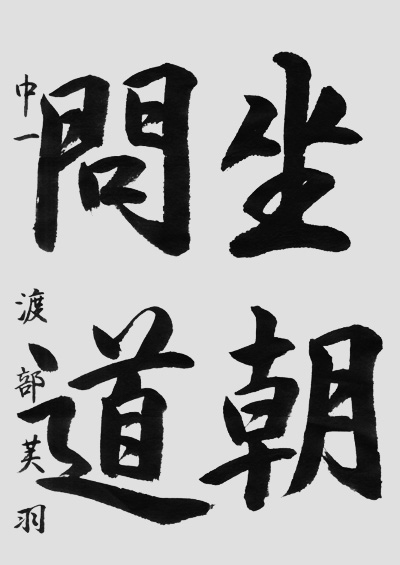 坐朝
問道
中一 渡部芙羽